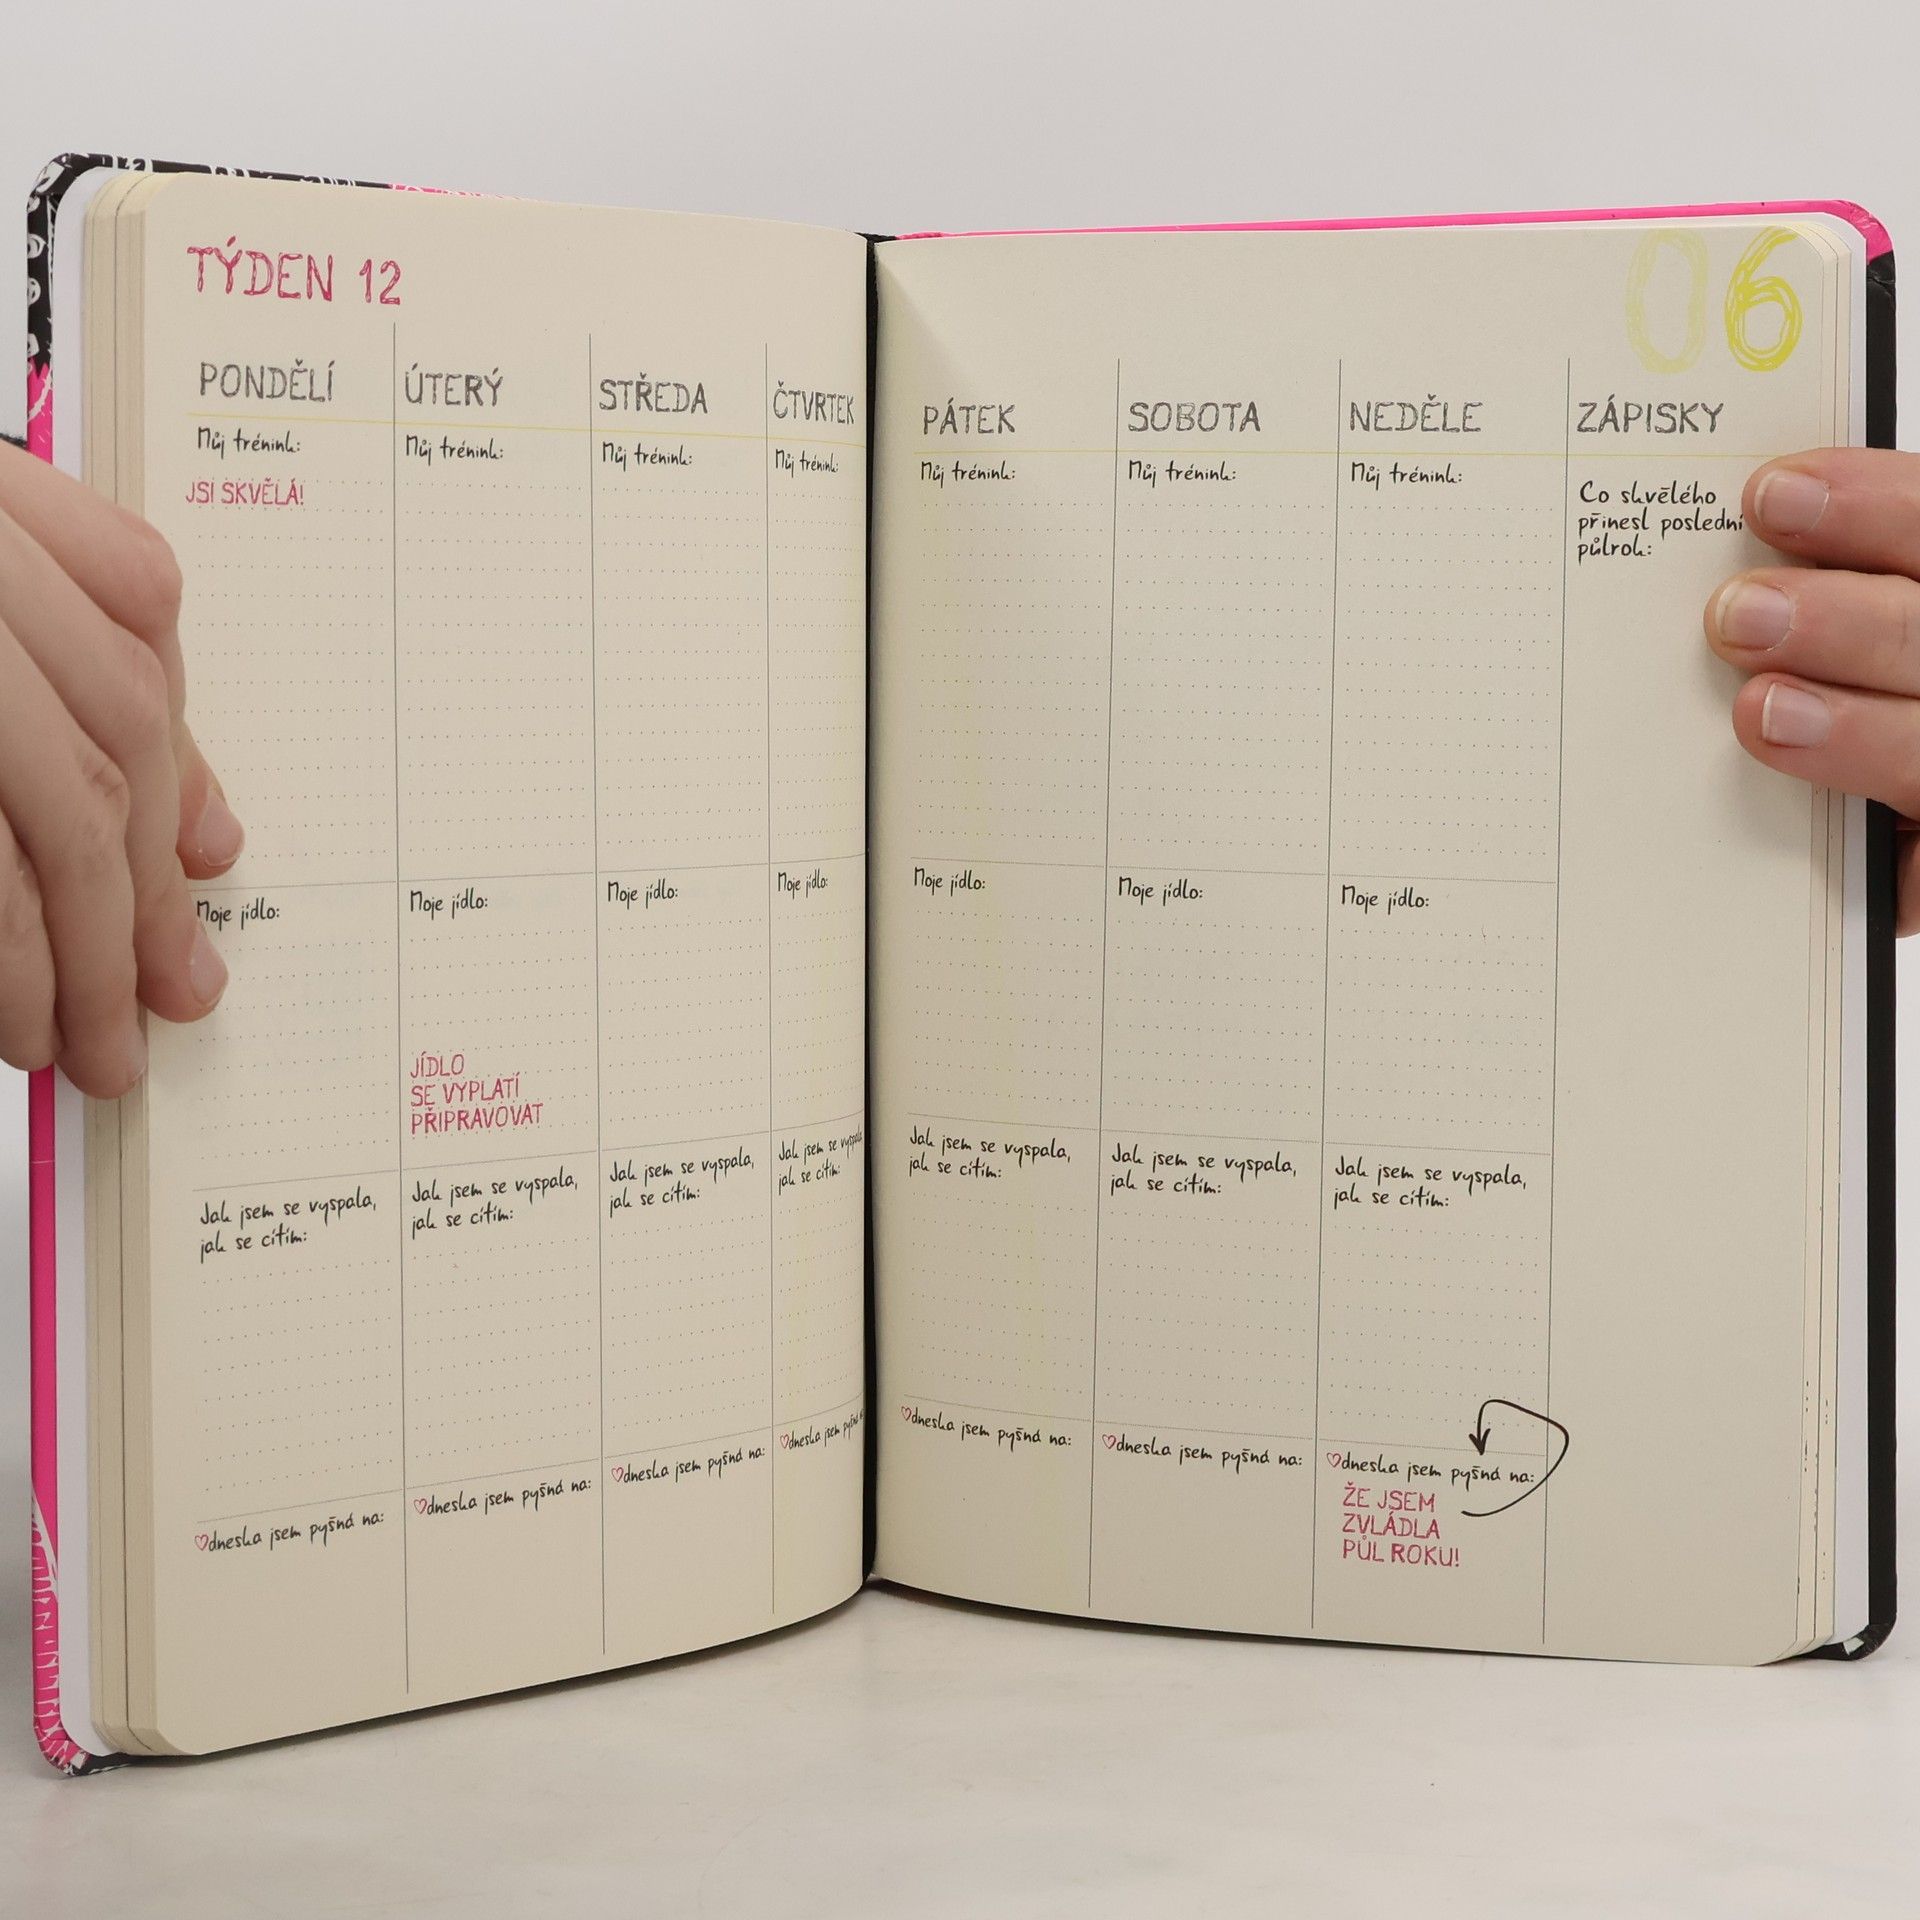 TÝDEN 12
06
PONDĚLÍ
Můj trénink:
JSI SKVĚLÁ!
Moje jídlo:
Jak jsem se vyspala,
jak se cítím:
dneska jsem pyšná na:
ÚTERÝ
Můj trénink:
Moje jídlo:
JÍDLO
SE VYPLATÍ
PŘIPRAVOVAT
Jak jsem se vyspala,
jak se cítím:
dneska jsem pyšná na:
STŘEDA
Můj trénink:
Moje jídlo:
Jak jsem se vyspala,
jak se cítím:
dneska jsem pyšná na:
ČTVRTEK
Můj trénink:
Moje jídlo:
Jak jsem se vyspala,
jak se cítím:
dneska jsem pyšná
PÁTEK
Můj trénink:
Moje jídlo:
Jak jsem se vyspala,
jak se cítím:
dneska jsem pyšná na:
SOBOTA
Můj trénink:
Moje jídlo:
Jak jsem se vyspala,
jak se cítím:
dneska jsem pyšná na:
NEDĚLE
Můj trénink:
Moje jídlo:
Jak jsem se vyspala,
jak se cítím:
dneska jsem pyšná na:
ŽE JSEM
ZVLÁDLA
PŮL ROKU!
ZÁPISKY
Co skvělého
přinesl poslední
půlrok: